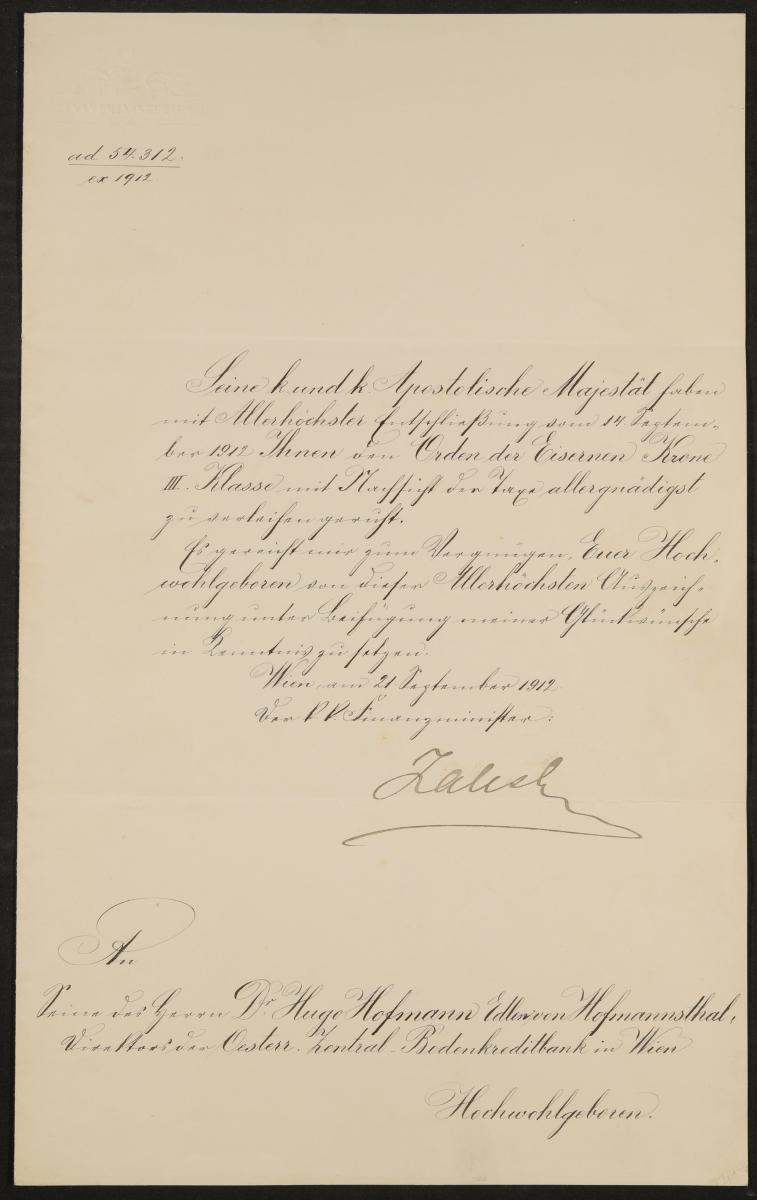 ad 54.312.
ex 1912
Seine k. und k. Apostolische Majestät haben
mit Allerhöchster Entschließung vom 14. Septem-
ber 1912 Ihnen den Orden der Eisernen Krone
III. Klasse mit Nachsicht der Taxe allergnädigst
zu verleihen geruht.
Es gereicht mir zum Vergnügen, Euer Hoch-
wohlgeboren von dieser Allerhöchsten Auszeich-
nung unter Beifügung meiner Glückwünsche
in Kenntnis zu setzen.
Wien, am 21. September 1912.
Der k. k. Finanzminister:
Zaleski
An
Seine des Herrn Dr. Hugo Hofmann Edlen von Hofmannsthal,
Direktors der Oesterr. Zentral-Bodenkreditbank in Wien
Hochwohlgeboren.